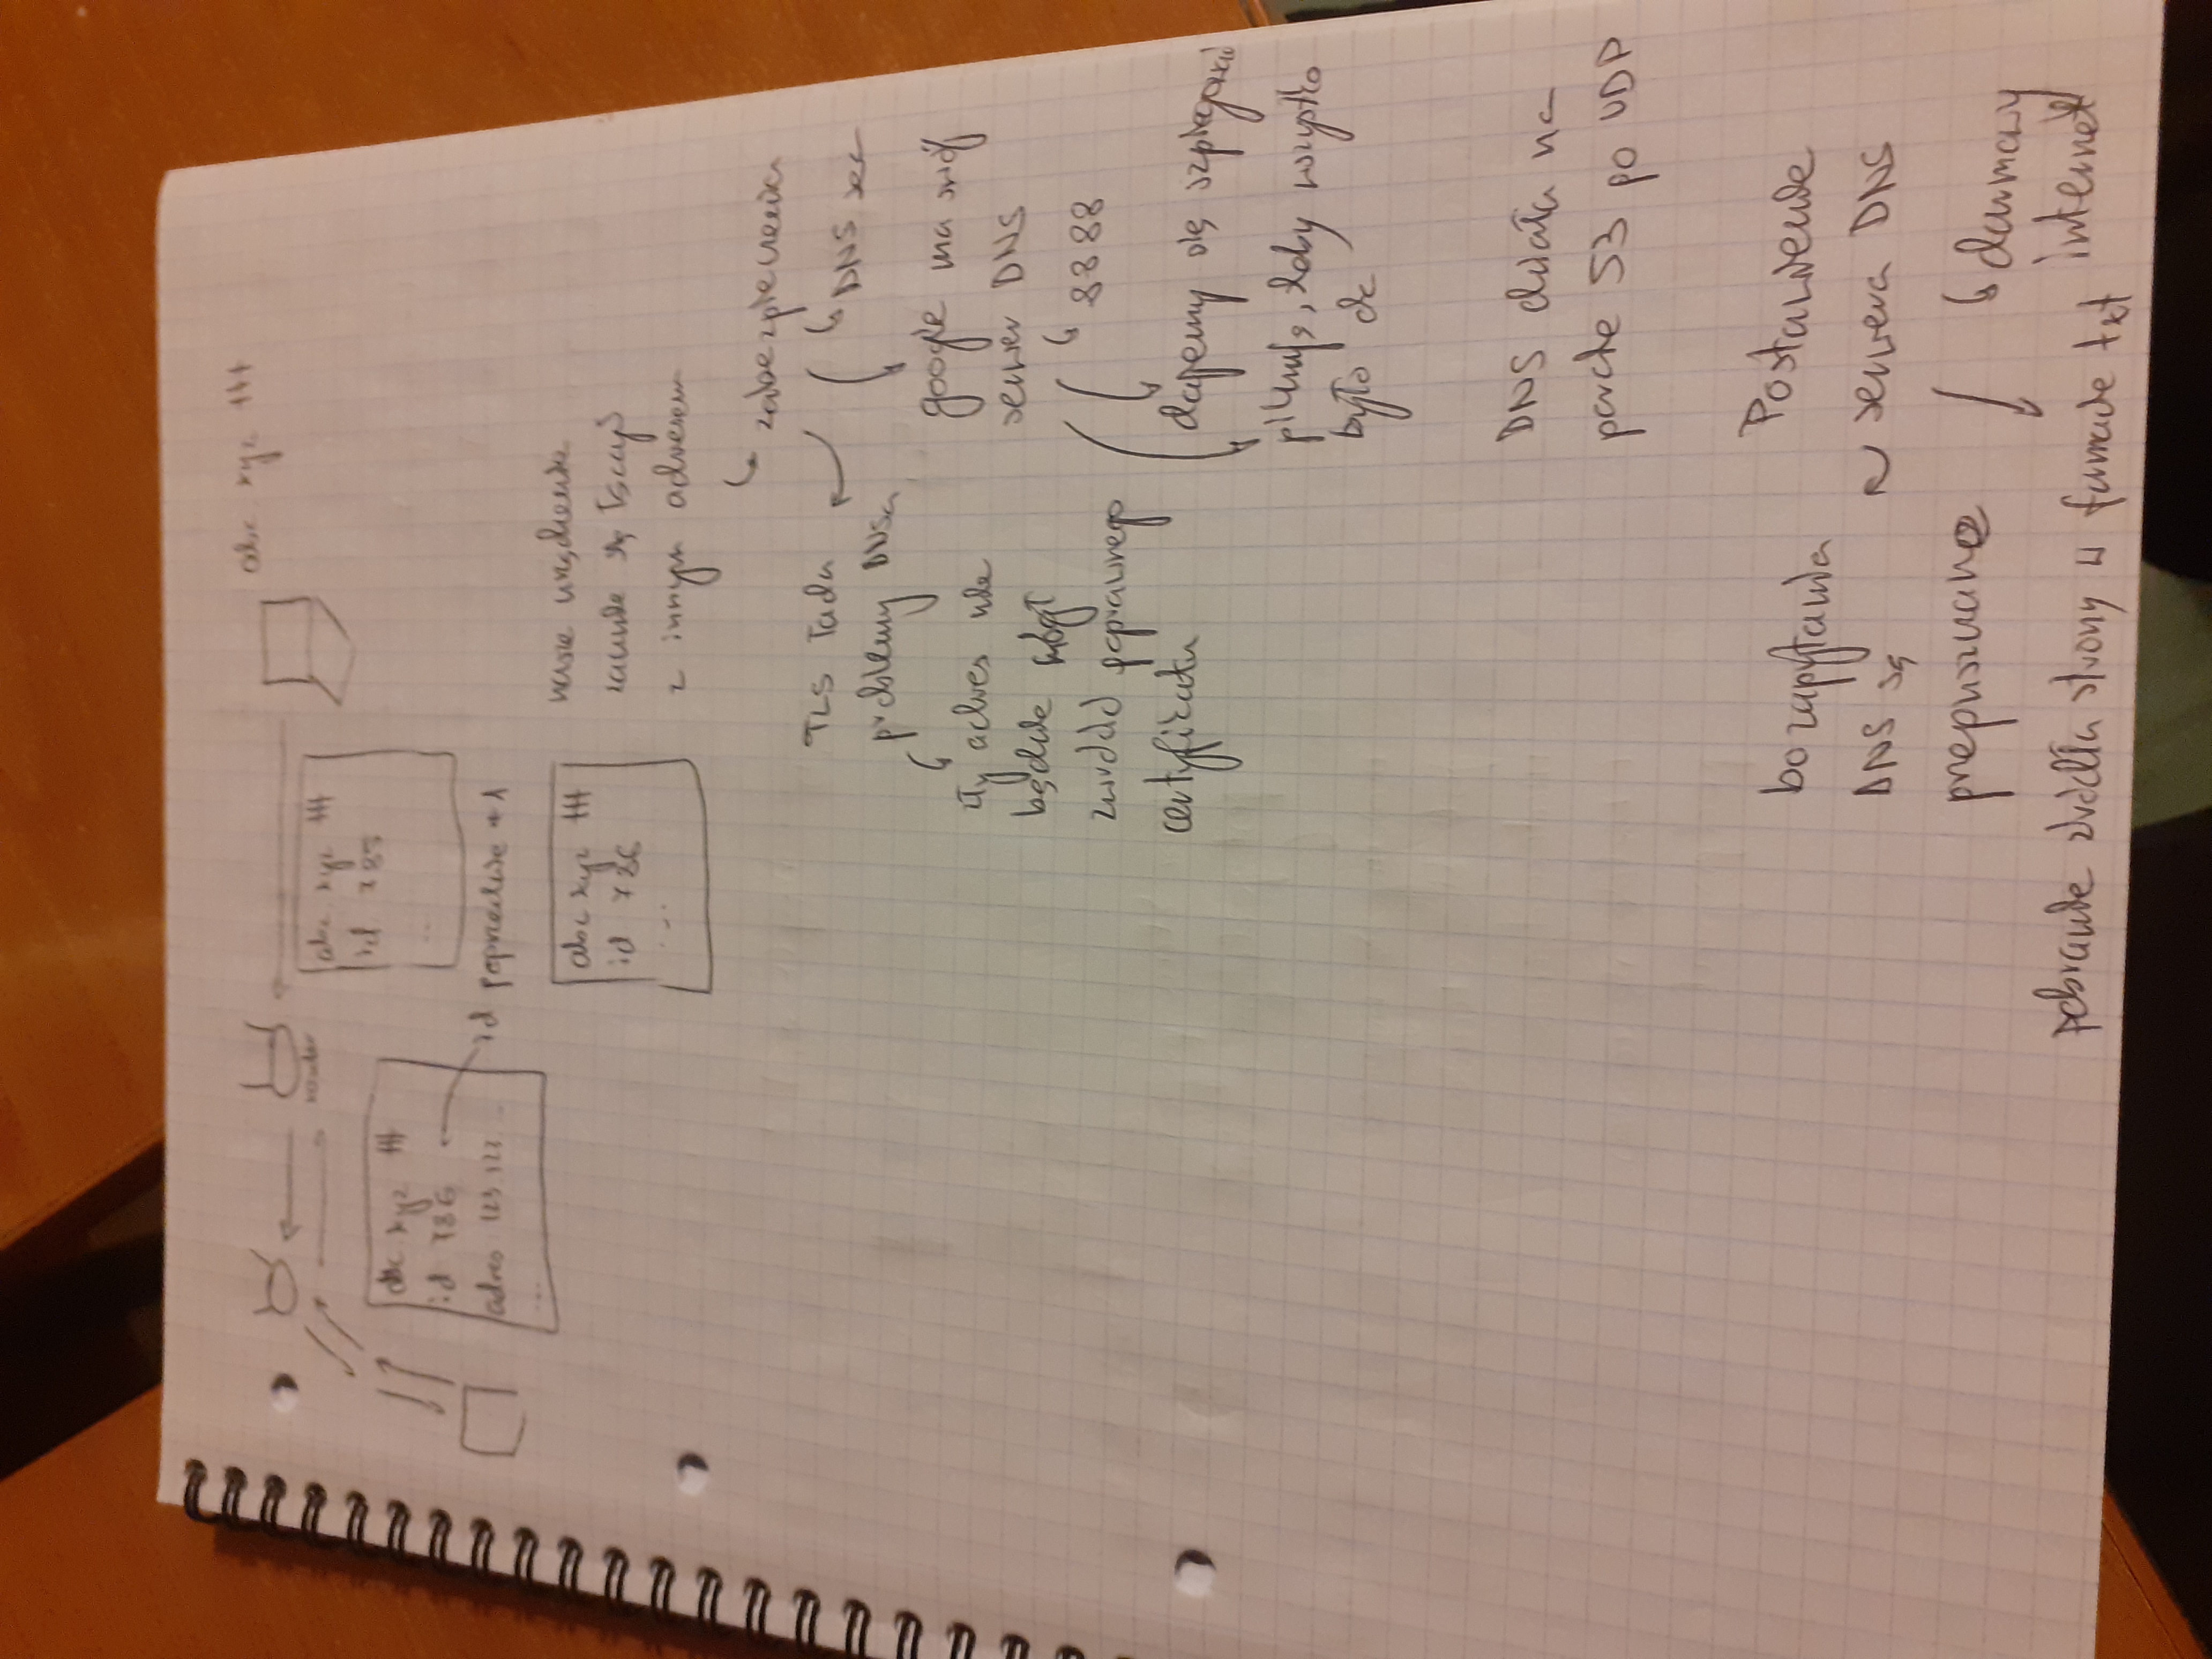 abc xyz ttt
router
abc xyz ttt
id 785
...
abc xyz ttt
id 786
adres 123.123 ...
...
id poprzednie + 1
abc xyz ttt
id 786
...
nasze urządzenie
zacznie się łączyć
z innym adresem
zabezpieczenia
TLS łata
problemy DNSa
DNS sec
zły adres nie
będzie mógł
zwrócić poprawnego
certyfikatu
google ma swój
serwer DNS
8888
dajemy się szpiegować
pilnują, żeby wszystko
było ok
DNS działa na
porcie 53 po UDP
Postawienie
serwera DNS
bo zapytania
DNS są
przepuszczane
darmowy
internet
pobranie źródła strony w formacie txt